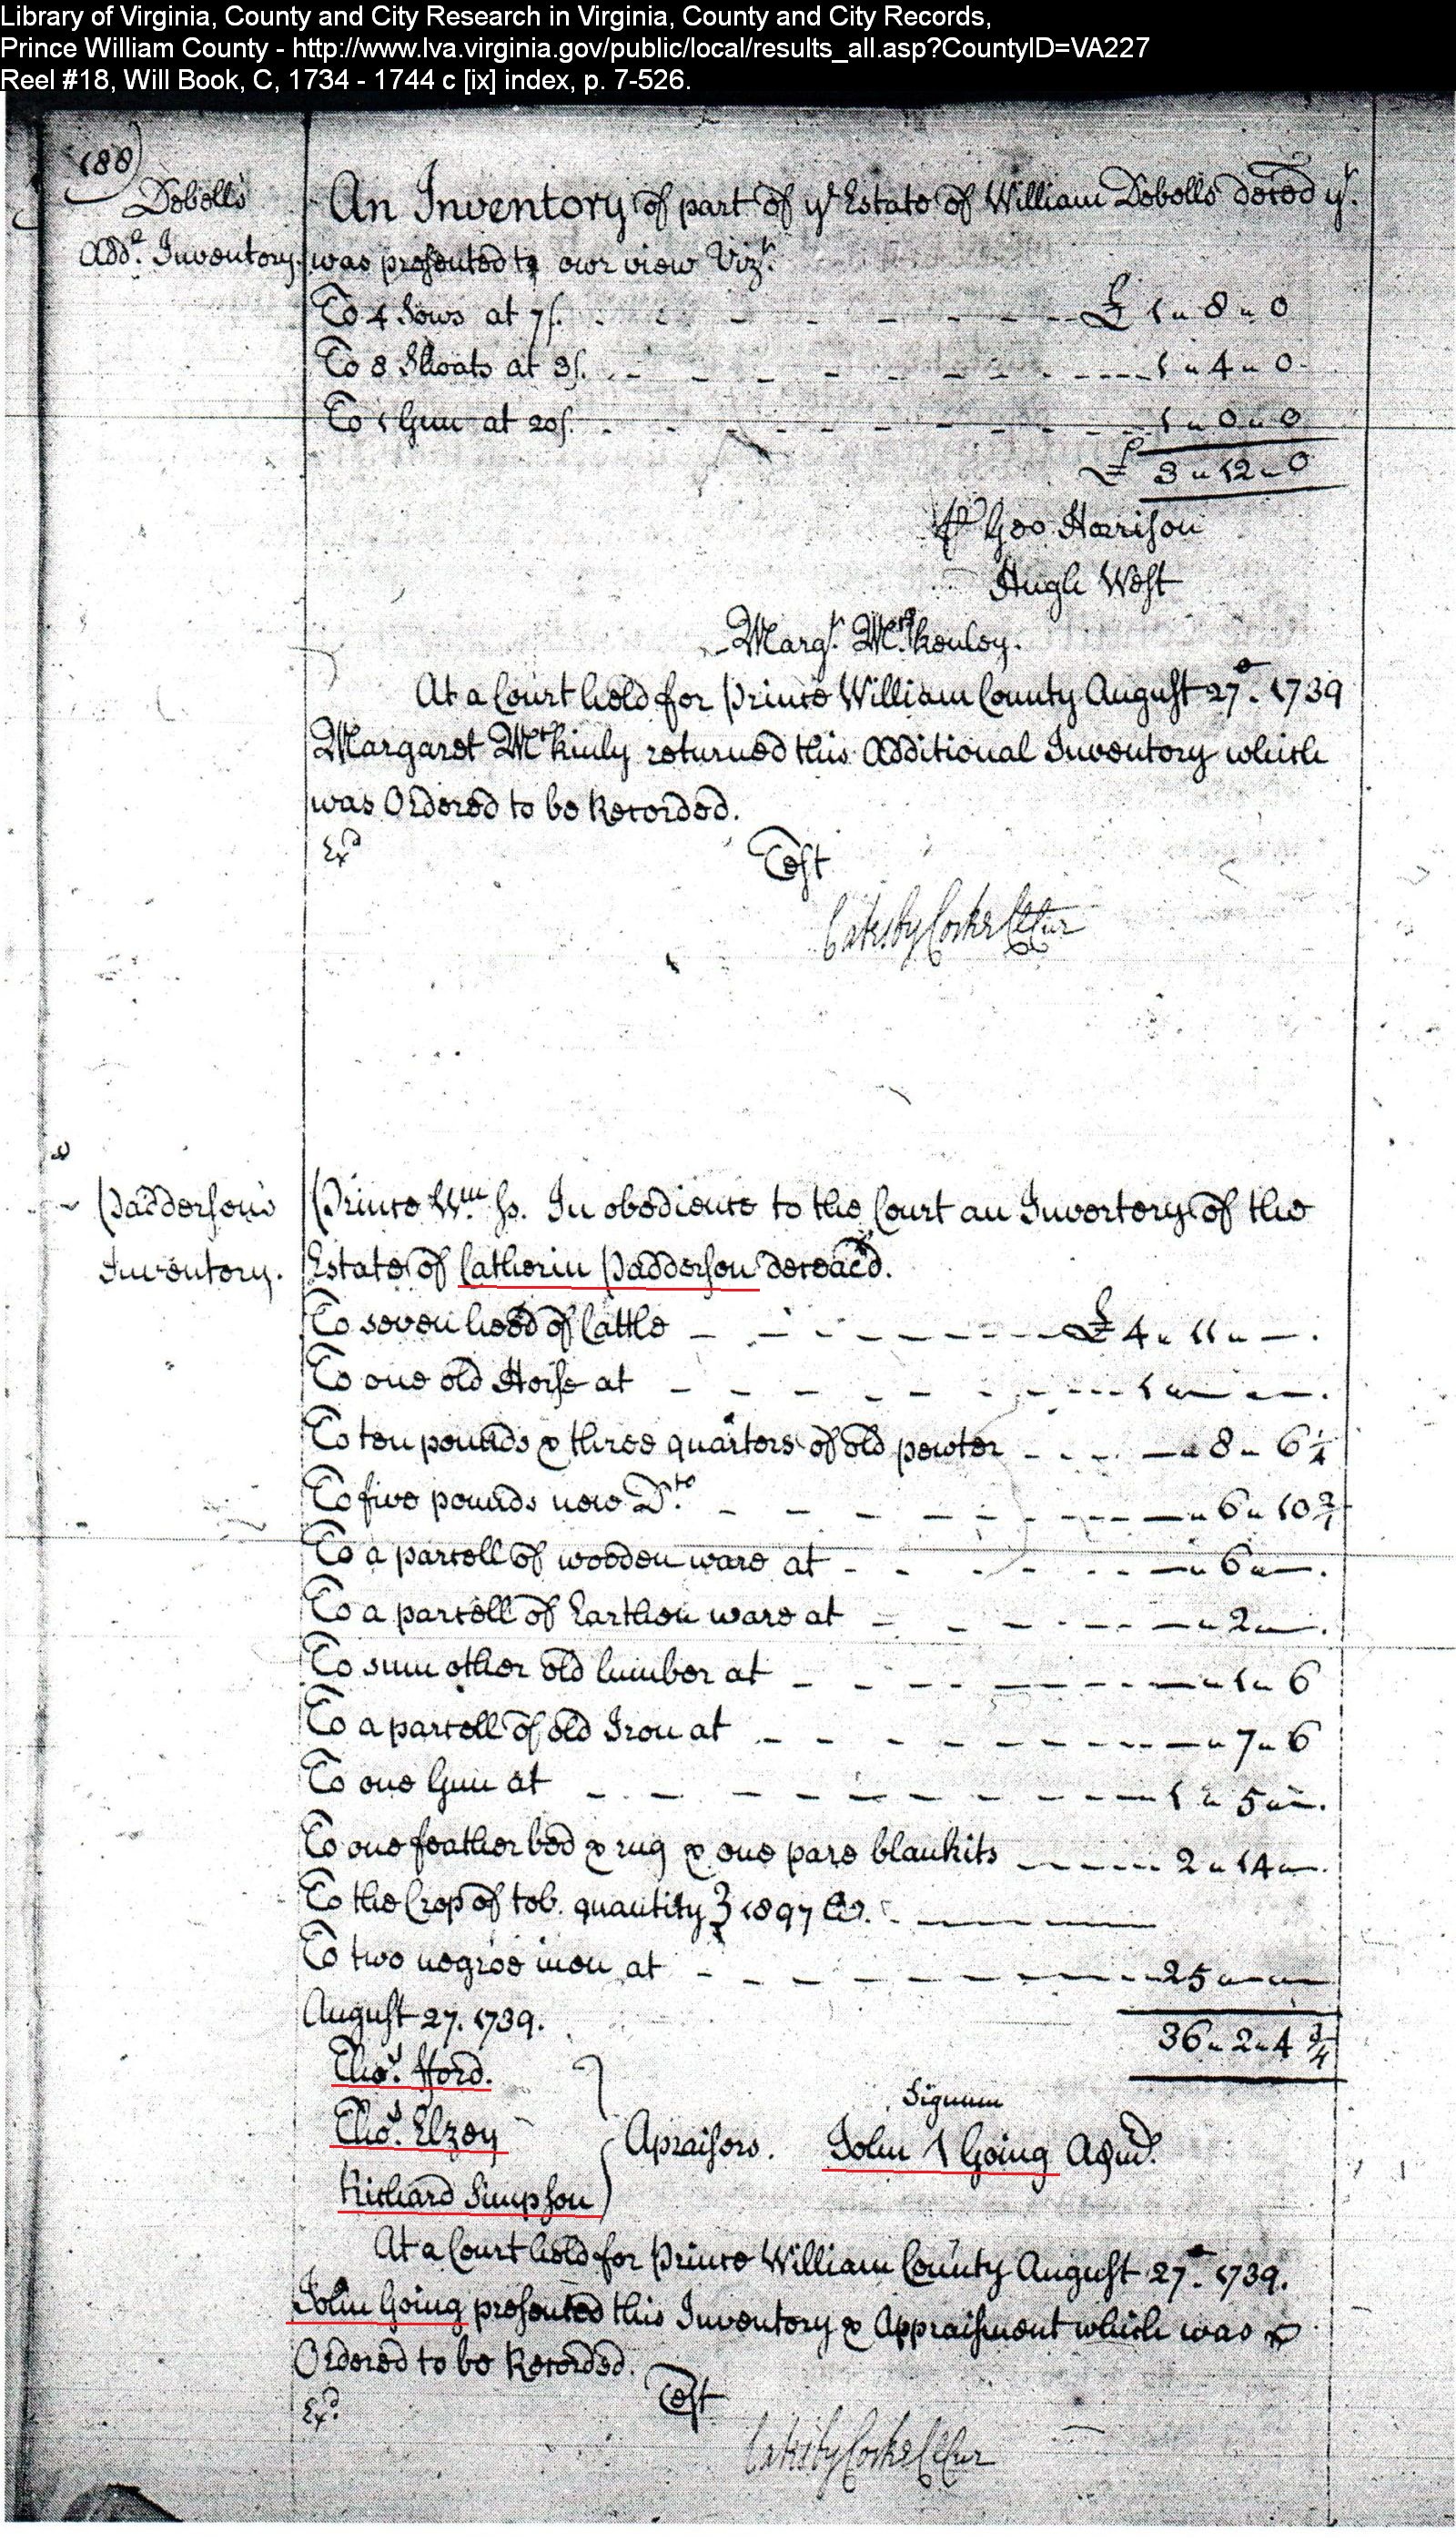 Library of Virginia, County and City Research in Virginia, County and City Records,
Prince William County - http://www.lva.virginia.gov/public/local/results_all.asp?CountyID=VA227
Reel #18, Will Book, C, 1734 - 1744 c [ix] index, p. 7-526.
188)
Dobolls
Add.l Inventory.
An Inventory of part of ye Estate of William Dobolls deced yt.
was presented to our view Vizt.
To 4 Sows at 7/. £ 1 " 8 " 0
To 8 Shoats at 3/. 1 " 4 " 0
To 1 Gun at 20/. 1 " 0 " 0
£ 3 " 12 " 0
P Geo Harrison
Hugh West
Margt. Mckenley.
At a Court held for Prince William County August 27th. 1739
Margaret Mckinly returned this Additional Inventory which
was Ordered to be Recorded.
Exd
Test
Catesby Cocke Cl Cur
Padderson's
Inventory.
Prince Wm. ss. In obedience to the Court an Invertory of the
Estate of Catherin Padderson deceacd.
To seven heed of Cattle £ 4 " 11 " —.
To one old Horse at 1 " — " —.
To ten pounds & three quarters of old pewter — " 8 " 6 1/4
To five pounds new Dto. — " 6 " 10 2/4
To a parcell of wooden ware at — " 6 " —.
To a parcell of Earthen ware at — " 2 " —.
To sum other old lumber at — " 1 " 6
To a parcell of old Iron at — " 7 " 6
To one Gun at 1 " 5 " —.
To one feather bed & rug & one pare blankits 2 " 14 " —.
To the Crop of tob. quantity } 1897 lb.
To two negroe men at 25 " — " —
August 27. 1739.
36 " 2 " 4 3/4
Thos. fford.
Thos. Elzey
Richard Simpson
Apraisors.
Signum
John 1 Going Admr.
At a Court held for Prince William County August 27th. 1739.
John Going presented this Inventory & Appraisment which was
Ordered to be Recorded.
Exd.
Test
Catesby Cocke Cl Cur